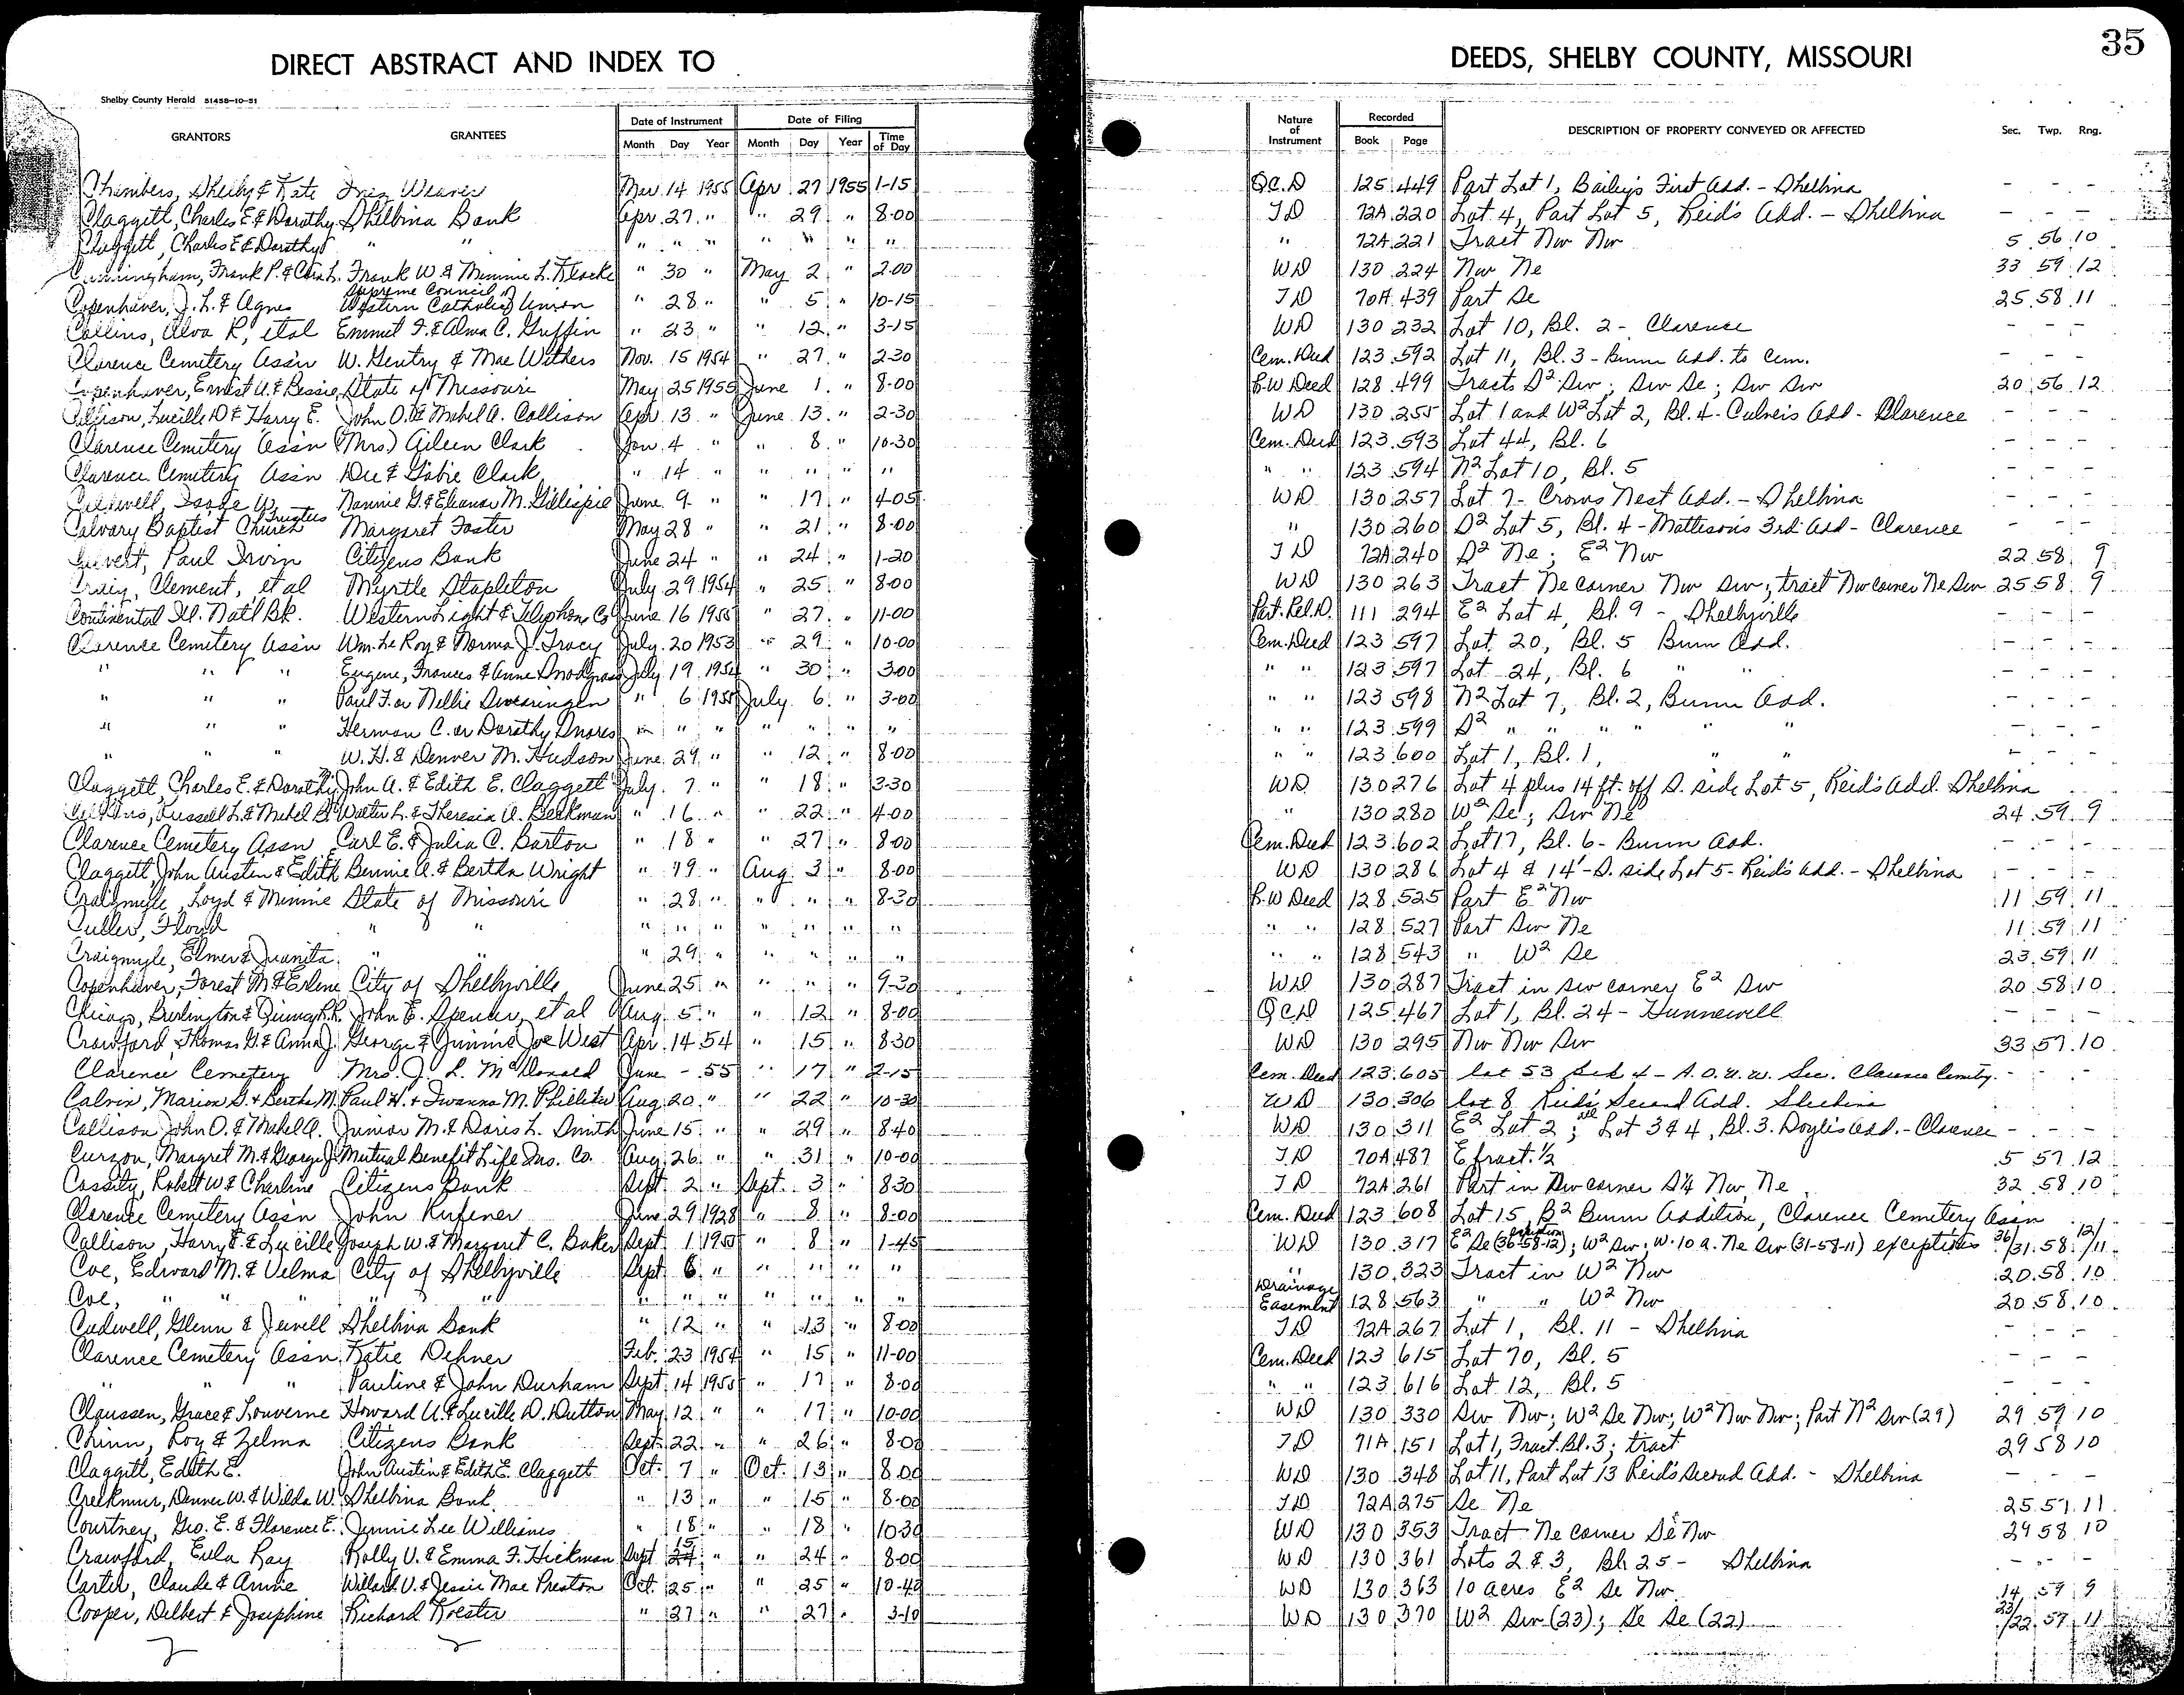 35
DIRECT ABSTRACT AND INDEX TO DEEDS, SHELBY COUNTY, MISSOURI
Shelby County Herald 51458-10-51
GRANTORS GRANTEES Date of Instrument Month Day Year Date of Filing Month Day Year Time of Day Nature of Instrument Recorded Book Page DESCRIPTION OF PROPERTY CONVEYED OR AFFECTED Sec. Twp. Rng.
Chambers, Shelby & Kate Inez Weaver Mar. 14 1955 Apr. 27 1955 1-15 Q.C.D 125 449 Part Lot 1, Bailey's First Add. - Shelbina - - -
Claggett, Charles E & Dorothy Shelbina Bank Apr. 27 " " 29 " 8-00 TD 72A 220 Lot 4, Part Lot 5, Reid's Add. - Shelbina - - -
Claggett, Charles E & Dorothy " " " " " " " " " " 72A 221 Tract Nw Nw 5 56 10
Cunningham, Frank P. & Frank W. & Minnie L. " 30 " May 2 " 2-00 WD 130 224 Nw Ne 33 59 12
Copenhaver, J. L. & Agnes Supreme Council of Western Catholic Union " 28 " " 5 " 10-15 TD 70A 439 Part Se 25 58 11
Collins, Alva R, etal Emmit F. & Alma C. Griffin " 23 " " 12 " 3-15 WD 130 232 Lot 10, Bl. 2 - Clarence - - -
Clarence Cemetery Ass'n W. Gentry & Mae Withers Nov. 15 1954 " 27 " 2-30 Cem. Deed 123 592 Lot 11, Bl. 3 - Bunn Add. to Cem. - - -
Copenhaver, Ernest A. & Bessie State of Missouri May 25 1955 June 1 " 8-00 R.W Deed 128 499 Tracts S² Sw; Sw Se; Sw Sw 20 56 12
Collison, Lucille D & Harry E. John O. & Mabel A. Collison Apr. 13 " June 13 " 2-30 WD 130 255 Lot 1 and W² Lot 2, Bl. 4 - Culver's Add - Clarence - - -
Clarence Cemetery Ass'n (Mrs.) Aileen Clark Jan. 4 " " 8 " 10-30 Cem. Deed 123 593 Lot 44, Bl. 6 - - -
Clarence Cemetery Ass'n Dee & Gobie Clark " 14 " " " " " " " 123 594 N² Lot 10, Bl. 5 - - -
Nannie G. & Eleanor M. Gillispie June 9 " " 17 " 4-05 WD 130 257 Lot 7 - Crows Nest Add. - Shelbina - - -
Calvary Baptist Church Trustees Margaret Foster May 28 " " 21 " 8-00 " 130 260 S² Lot 5, Bl. 4 - Mattison's 3rd Add - Clarence - - -
Paul Irvin Citizens Bank June 24 " " 24 " 1-20 TD 72A 240 S² Ne; E² Nw 22 58 9
Craig, Clement, et al Myrtle Stapleton July 29 1954 " 25 " 8-00 WD 130 263 Tract Ne corner Nw Sw; tract Nw corner Ne Sw 25 58 9
Continental Ill. Nat'l Bk. Western Light & Telephone Co June 16 1955 " 27 " 11-00 Part. Rel. D. 111 294 E² Lot 4, Bl. 9 - Shelbyville - - -
Clarence Cemetery Ass'n Wm. Le Roy & Norma J. Tracy July 20 1953 " 29 " 10-00 Cem. Deed 123 597 Lot 20, Bl. 5 Bunn Add. - - -
" " " Eugene, Frances & Anne Snodgrass July 19 1954 " 30 " 3-00 " " 123 597 Lot 24, Bl. 6 " " - - -
" " " Paul F. or Nellie Swearingen " 6 1955 July 6 " 3-00 " " 123 598 N² Lot 7, Bl. 2, Bunn Add. - - -
" " " Herman C. or Dorothy Snores " " " " " " " " " 123 599 S² " " " " " - - -
" " " W. H. & Denver M. Hudson June 29 " " 12 " 8-00 " " 123 600 Lot 1, Bl. 1, " " - - -
Claggett, Charles E. & Dorothy M. John A. & Edith E. Claggett July 7 " " 18 " 3-30 WD 130 276 Lot 4 plus 14 ft. off S. side Lot 5, Reid's Add. Shelbina
Russell L. & Mabel B. Walter L. & Theresia A. Berkman " 16 " " 22 " 4-00 " 130 280 W² Se; Sw Ne 24 59 9
Clarence Cemetery Assn Carl E. & Julia C. Barton " 18 " " 27 " 8-00 Cem. Deed 123 602 Lot 17, Bl. 6 - Bunn Add. - - -
Claggett, John Austen & Edith Bennie A. & Bertha Wright " 19 " Aug. 3 " 8-00 WD 130 286 Lot 4 & 14' - S. side Lot 5 - Reid's Add. - Shelbina - - -
Craigmyle, Loyd & Minnie State of Missouri " 28 " " " " 8-30 R.W Deed 128 525 Part E² Nw 11 59 11
Culler, Floyd " " " " " " " " " " " 128 527 Part Sw Ne 11 59 11
Craigmyle, Elmer & Juanita " " " 29 " " " " " " " 128 543 " W² Se 23 59 11
Copenhaver, Forest M. & Erlene City of Shelbyville June 25 " " " " 9-30 WD 130 287 Tract in Sw corner E² Sw 20 58 10
Chicago, Burlington & Quincy R.R. John E. Spencer, et al Aug. 5 " " 12 " 8-00 QCD 125 467 Lot 1, Bl. 24 - Hunnewell - - -
Crawford, Thomas G. & Anna J. George & Jinnie Joe West Apr. 14 54 " 15 " 8-30 WD 130 295 Nw Nw Sw 33 57 10
Clarence Cemetery Mrs. J. L. McDonald June - 55 " 17 " 2-15 Cem. Deed 123 605 lot 53 Bed 4 - A.O.U.W. Sec. Clarence Cemetery - - -
Calvin, Marion G. & Bertha M. Paul H. & Iwanna M. Aug. 20 " " 22 " 10-30 WD 130 306 lot 8 Reid's Second Add. Shelbina
Collison John O. & Mabel A. Junior M. & Doris L. Smith June 15 " " 29 " 8-40 WD 130 311 E² Lot 2; all Lot 3 & 4, Bl. 3. Doyle's Add. - Clarence - - -
Curson, Margret M. & George J. Mutual Benefit Life Ins. Co. Aug. 26 " " 31 " 10-00 TD 70A 487 E fract. ½ 5 57 12
Cassity, Robert W. & Charline Citizens Bank Sept. 2 " Sept. 3 " 8-30 TD 72A 261 Part in Sw corner S¼ Nw, Ne 32 58 10
Clarence Cemetery Assn John Kufener June 29 1928 " 8 " 8-00 Cem. Deed 123 608 Lot 15, B² Bunn Addition, Clarence Cemetery Assn
Collison, Harry E. & Lucille Joseph W. & Margaret C. Baker Sept. 1 1955 " 8 " 1-45 WD 130 317 E² Se (36-58-12); W² Sw; W. 10 a. Ne Sw (31-58-11) exceptions 36/31 58 12/11
Coe, Edward M. & Velma City of Shelbyville Sept. 6 " " " " " " 130 323 Tract in W² Nw 20 58 10
Coe, " " " " " " " " " " Drainage Easement 128 563 " " W² Nw 20 58 10
Cadwell, Glenn & Jewell Shelbina Bank " 12 " " 13 " 8-00 TD 72A 267 Lot 1, Bl. 11 - Shelbina - - -
Clarence Cemetery Assn Katie Dehner Feb. 23 1954 " 15 " 11-00 Cem. Deed 123 615 Lot 70, Bl. 5 - - -
" " " Pauline & John Durham Sept. 14 1955 " 17 " 8-00 " " 123 616 Lot 12, Bl. 5 - - -
Claussen, Grace & Louverne Howard A. & Lucille D. Dutton May 12 " " 17 " 10-00 WD 130 330 Sw Nw; W² Se Nw; W² Nw Nw; Part N² Sw (29) 29 59 10
Chinn, Roy & Zelma Citizens Bank Sept. 22 " " 26 " 8-00 TD 71A 151 Lot 1, Fract. Bl. 3; tract 29 58 10
Claggett, Edith E. John Austin & Edith E. Claggett Oct. 7 " Oct. 13 " 8-00 WD 130 348 Lot 11, Part Lot 13 Reid's Second Add. - Shelbina - - -
Creekmur, Denver W. & Wilda W. Shelbina Bank " 13 " " 15 " 8-00 TD 72A 275 Se Ne 25 57 11
Courtney, Geo. E. & Florence E. Jennie Lee Williams " 18 " " 18 " 10-30 WD 130 353 Tract Ne corner Se Nw 29 58 10
Crawford, Eula Ray Rolly V. & Emma F. Hickman Sept. 15 " " 24 " 8-00 WD 130 361 Lots 2 & 3, Bl. 25 - Shelbina - - -
Carter, Claude & Annie Willard V. & Jessie Mae Preston Oct. 25 " " 25 " 10-40 WD 130 363 10 acres E² Se Nw 14 59 9
Cooper, Delbert & Josephine Richard Koester " 27 " " 27 " 3-10 WD 130 370 W² Sw (23); Se Se (22) 23/22 57 11